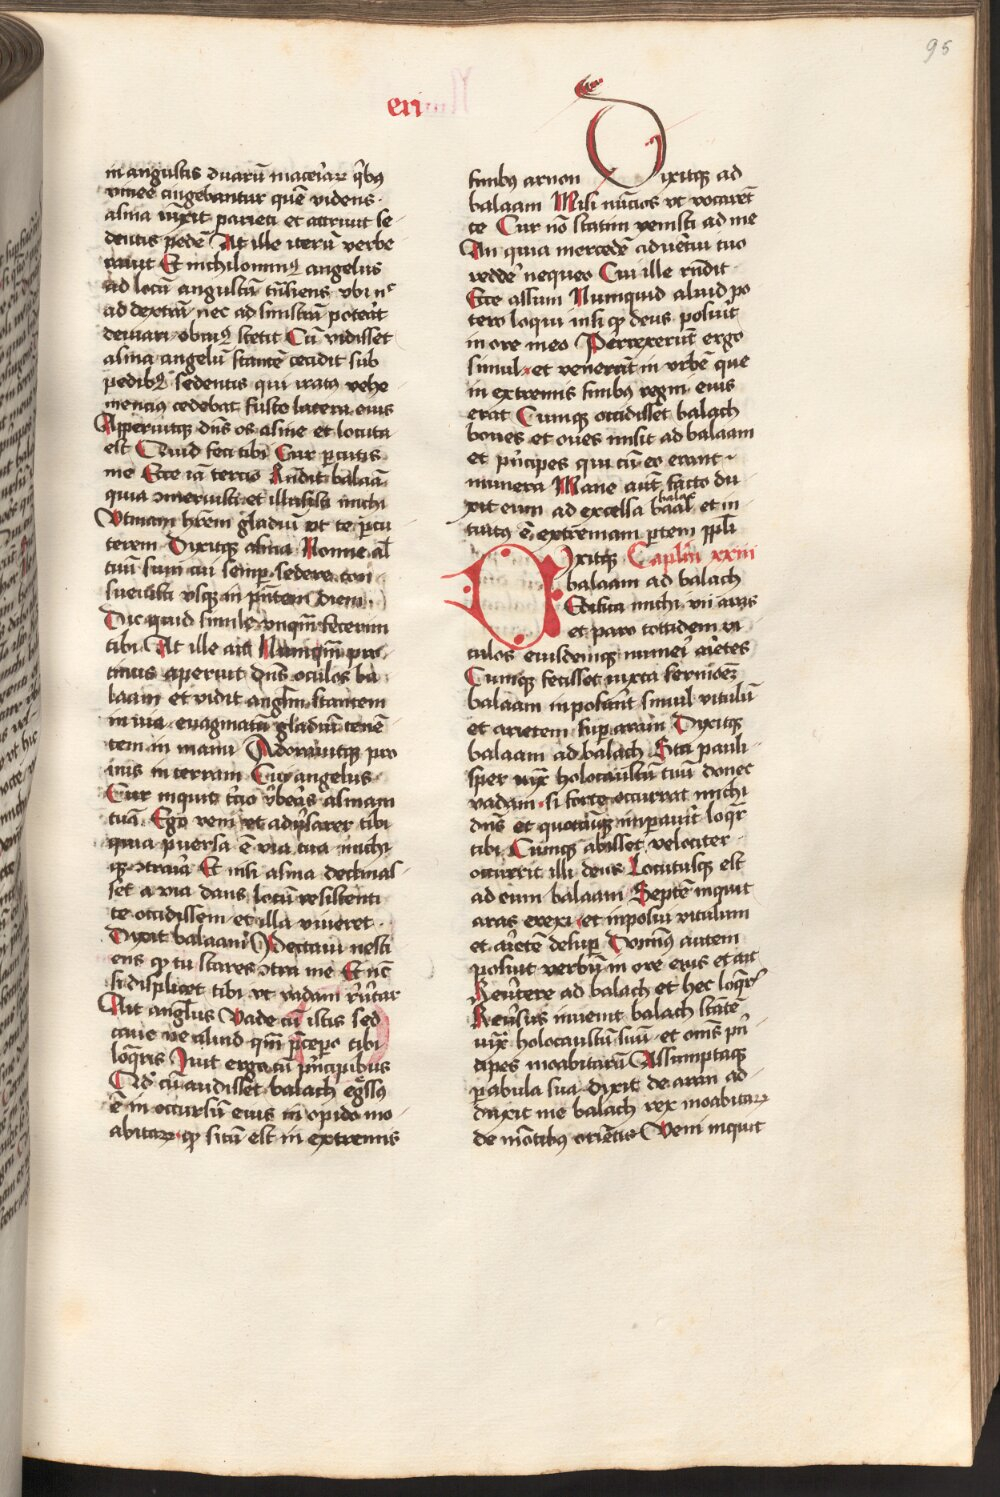 95
eri
in angustis duarū maceriaꝝ q̄bꝯ
vinee cingebantur quē videns
asina iūxit parieti et attriuit se
dentis pedē At ille iterū verbe
rauit Et nichilominꝰ angelus
ad locū angustū tn̄siens vbi nᶜ
ad dextrā nec ad sinistrā poterāt
deuiari obuiꝰ stetit Cū vidisset
asina angelū stantē cecidit sub
pedibꝰ sedentis qui iratꝰ vehe
mencius cedebat fuste latera eius
Aperuitqꝫ dn̄s os asine et locuta
est Quid feci tibi Cur ꝑcutis
me Ecce iā tercio Rn̄dit balaā
quia ꝯmeruisti et illusisti michi
Vtinam hr̄em gladiū vt te ꝑcu
terem Dixitqꝫ asina Nonne aīal
tuū sum cui semꝑ sedere con
sueuisti vsqꝫ in p̄ntem diem
Dic quid simile vnqm̄ fecerim
tibi At ille ait Nunqm̄ pro
tinus aperuit dn̄s oculos ba
laam et vidit angl̄m stantem
in via euaginatū gladiū tenē
tem in manu Adorauitqꝫ pro
nus in terram Cui angelus
Cur inquit t̄cio v̄beras asinam
tuā Ego veni vt adūsarer tibi
quia ꝑuersa ē via tua michi
qꝫ ꝯtraria Et nisi asina declinas
set a via dans locū resistenti
te occidissem et illa viueret
Dixit balaam Peccaui nesci
ens qꝫ tu stares ꝯtra me Et nūc
si displicet tibi vt vadam reūtar
Ait angl̄us Vade cū istis sed
caue ne aliud qm̄ p̄cepero tibi
loq̄ris Iuit ergo cū p̄ncipibus
Qd̄ cū audisset balach egssꝰ
ē in occursū eius in opido mo
abitaꝝ qꝫ situ est in extremis
finibꝰ arnon Dixitqꝫ ad
balaam Misi nūcios vt vocarēt
te Cur nō statim venisti ad me
An quia mercedē aduētui tuo
reddē nequeo Cui ille rn̄dit
Ecce assum Numquid aliud po
tero loqui nisi qꝫ deus posuit
in ore meo Perrexerunt ergo
simul et venerūt in vrbē que
in extremis finibꝰ regni eius
erat Cumqꝫ occidisset balach
boues et oues misit ad balaam
et p̄ncipes qui cū eo erant
munera Mane autē facto du
xit eum ad excelsa baal et in
balak
tuitꝰ ē extremam ꝑtem ppl̄i
Dixitqꝫ Caplm̄ xxiii
balaam ad balach
Edifica michi vii aras
et para totidem vi
tulos eiusdemqꝫ numeri arietes
Cumqꝫ fecisset iuxta sermonē
balaam inposuer̄t simul vitulū
et arietem suꝑ aram Dixitqꝫ
balaam ad balach Sta pauli
sper iux̄ holocaustū tuū donec
vadam si forte occurrat michi
dn̄s et quodcūqꝫ imꝑauit loq̄r
tibi Cumqꝫ abisset velociter
occurrit illi deus Locutusqꝫ est
ad eum balaam Septē inquit
aras erexi et inposui vitulum
et arietē desuꝑ Dominꝰ autem
posuit verbū in ore eius et ait
Reūtere ad balach et hec loq̄r̄
Reūsus inuenit balach stātē
iux̄ holocaustū suū et oīms pn̄
cipes moabitarū Assumptaqꝫ
ꝑabula sua dixit de aram ad
duxit me balach rex moabitaꝝ
de mōtibus oriētis Veni inquit